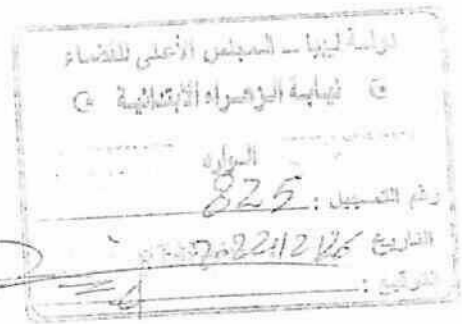 دولة ليبيا - المجلس الأعلى للقضاء
نيابة الزهراء الابتدائية
الوارد
رقم التسجيل : 825
التاريخ 2022/12/26
التوقيع :